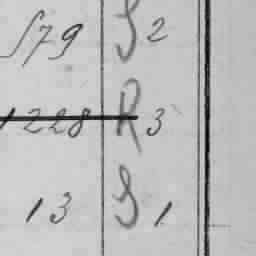 579 S 2
1228 R 3
13 S 1